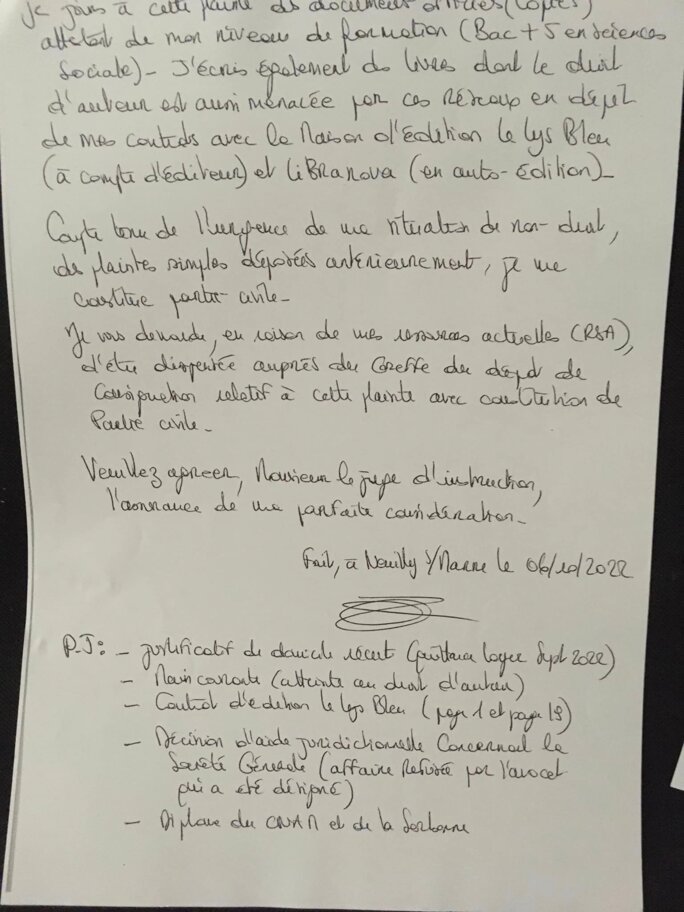 Je joins à cette plainte des documents officiels (copies)
attestant de mon niveau de formation (Bac + 5 en sciences
Sociale) - J'écris également des livres dont le droit
d'auteur est aussi menacée par ces Réseaux en dépit
de mes contrats avec la Maison d'édition le lys Bleu
(à compte d'éditeur) et LiBRANova (en auto-édition) -
Compte tenu de l'urgence de ma situation de non-droit,
des plaintes simples déposées antérieurement, je me
constitue partie civile -
Je vous demande, en raison de mes ressources actuelles (RSA),
d'être dispensée auprès du Greffe du dépôt de
Consignation relatif à cette plainte avec constitution de
Partie civile -
Veuillez agréer, Monsieur le juge d'instruction,
l'assurance de ma parfaite considération -
Fait, à Neuilly s/Marne le 06/10/2022
P.J: - justificatif de domicile récent (quittance loyer Sept 2022)
- Main courante (atteinte au droit d'auteur)
- Contrat d'édition le lys Bleu (page 1 et page 19)
- Décision d'aide juridictionnelle Concernant la
Société Générale (affaire Refusée par l'avocat
qui a été désigné)
- Diplôme du CNAM et de la Sorbonne